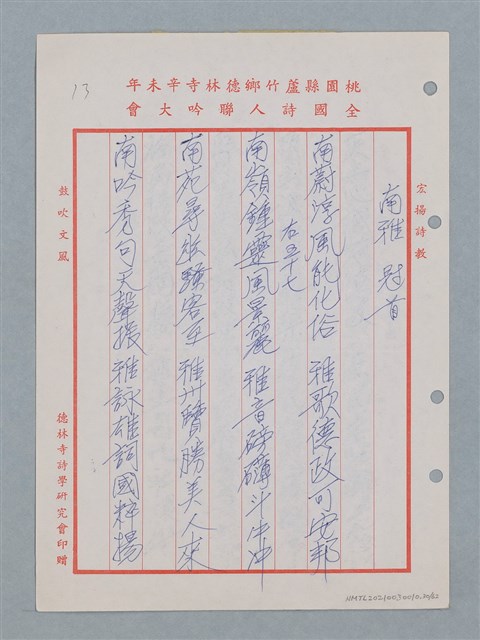 13
桃園縣蘆竹鄉德林寺辛未年
全國詩人聯吟大會
宏揚詩教
鼓吹文風
南雅 冠首
南蔚淳風能化俗 雅歌德政可安邦
右五十七
南嶺鍾靈風景麗 雅音磅礡斗牛冲
南苑尋幽騷客至 雅州覽勝美人來
南吟秀句天聲振 雅詠雄詞國粹揚
德林寺詩學研究會印贈
NMTL20210030010